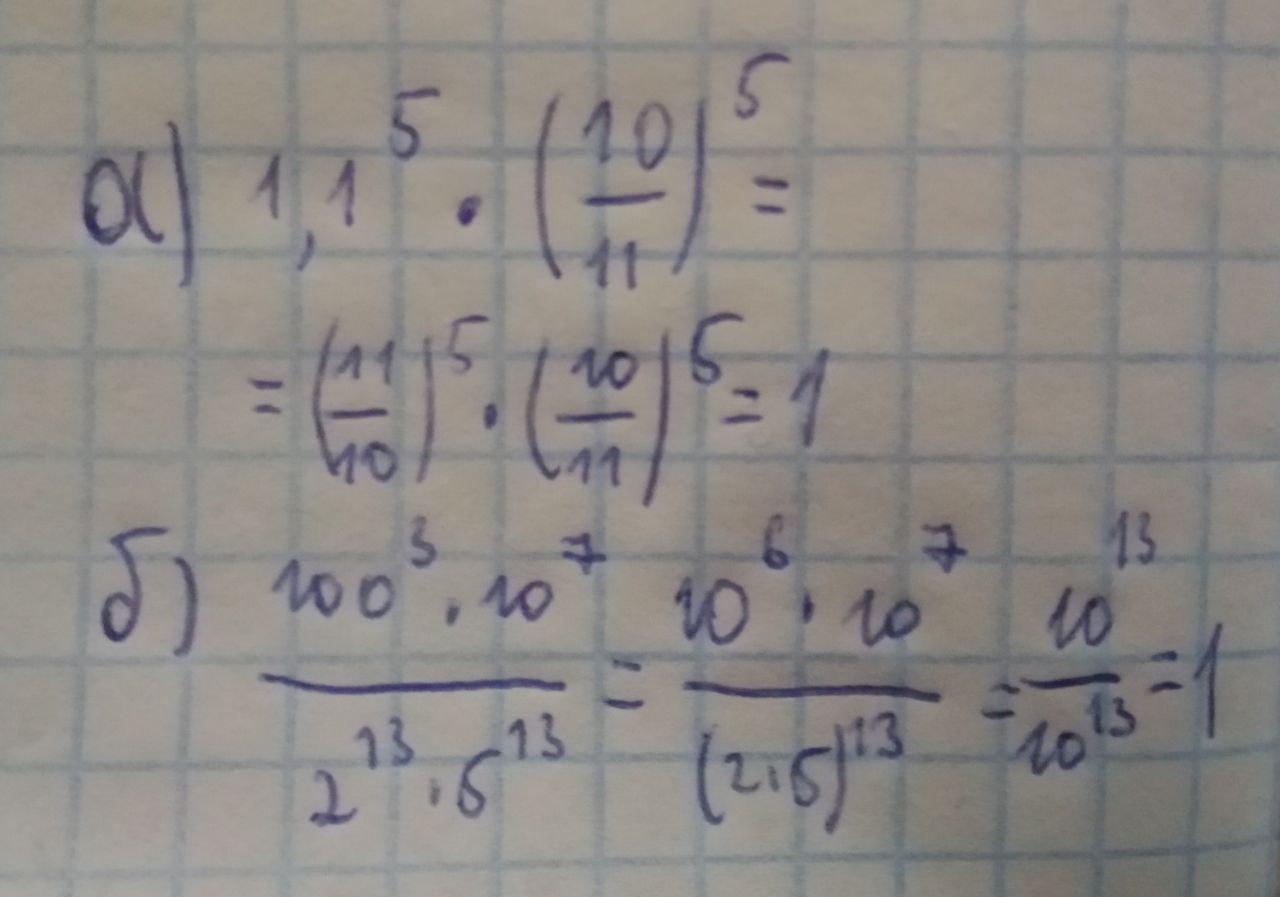 а) 1,1^5 · (10/11)^5 =
= (11/10)^5 · (10/11)^5 = 1
б) (100^3 · 10^7)/(2^13 · 5^13) = (10^6 · 10^7)/((2·5)^13) = 10^13/10^13 = 1